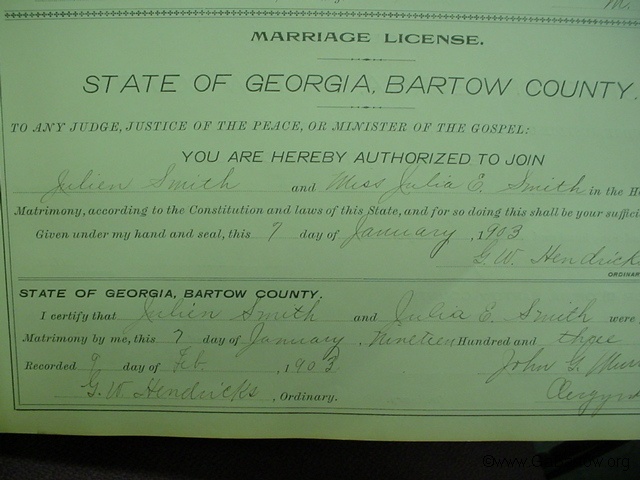 M.
MARRIAGE LICENSE.
STATE OF GEORGIA, BARTOW COUNTY.
TO ANY JUDGE, JUSTICE OF THE PEACE, OR MINISTER OF THE GOSPEL:
YOU ARE HEREBY AUTHORIZED TO JOIN
Julien Smith and Miss Julia E. Smith in the Ho
Matrimony, according to the Constitution and laws of this State, and for so doing this shall be your suffici
Given under my hand and seal, this 7 day of January , 1903
G. W. Hendricks
ORDINAR
STATE OF GEORGIA, BARTOW COUNTY.
I certify that Julien Smith and Julia E. Smith were
Matrimony by me, this 7 day of January , Nineteen Hundred and three
Recorded 9 day of Feb , 1903 John G.
G. W. Hendricks , Ordinary.